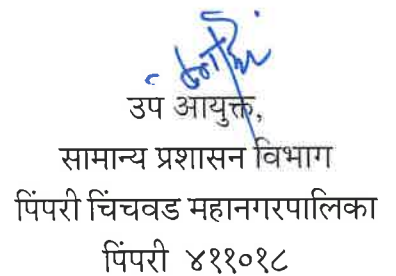 उप आयुक्त,
सामान्य प्रशासन विभाग
पिंपरी चिंचवड महानगरपालिका
पिंपरी ४११०१८